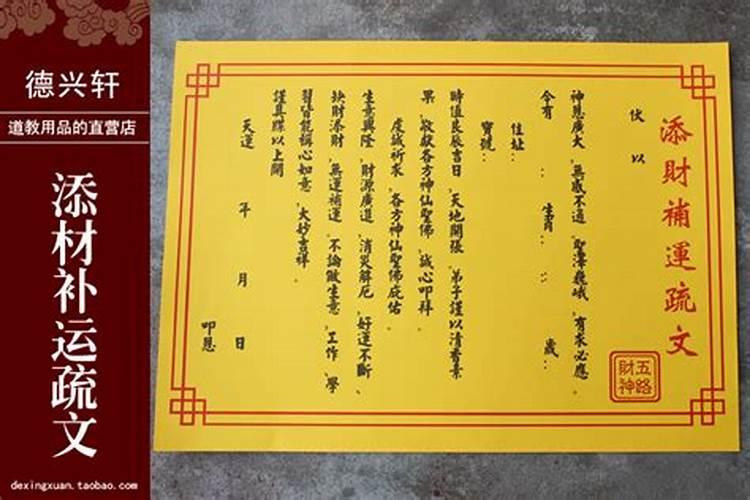 德兴轩
道教用品的直营店
添材补运疏文
dexingxuan.taobao.com
添財補運疏文
五路財神
伏以
神恩廣大，無感不通，聖澤巍峨，有求必應。
今有：生肖：：歲，
住址：
寶號：
時值良辰吉日，天地開張，弟子謹以清香素
果，敬獻各方神仙聖佛，誠心叩拜。
虔誠祈求，各方神仙聖佛庇佑。
生意興隆，財源廣進，消災解厄，好運不斷、
缺財添財，無運補運，不論做生意，工作，學
習皆能稱心如意，大妙吉祥。
謹具牒以上聞
天運 年 月 日
叩恩